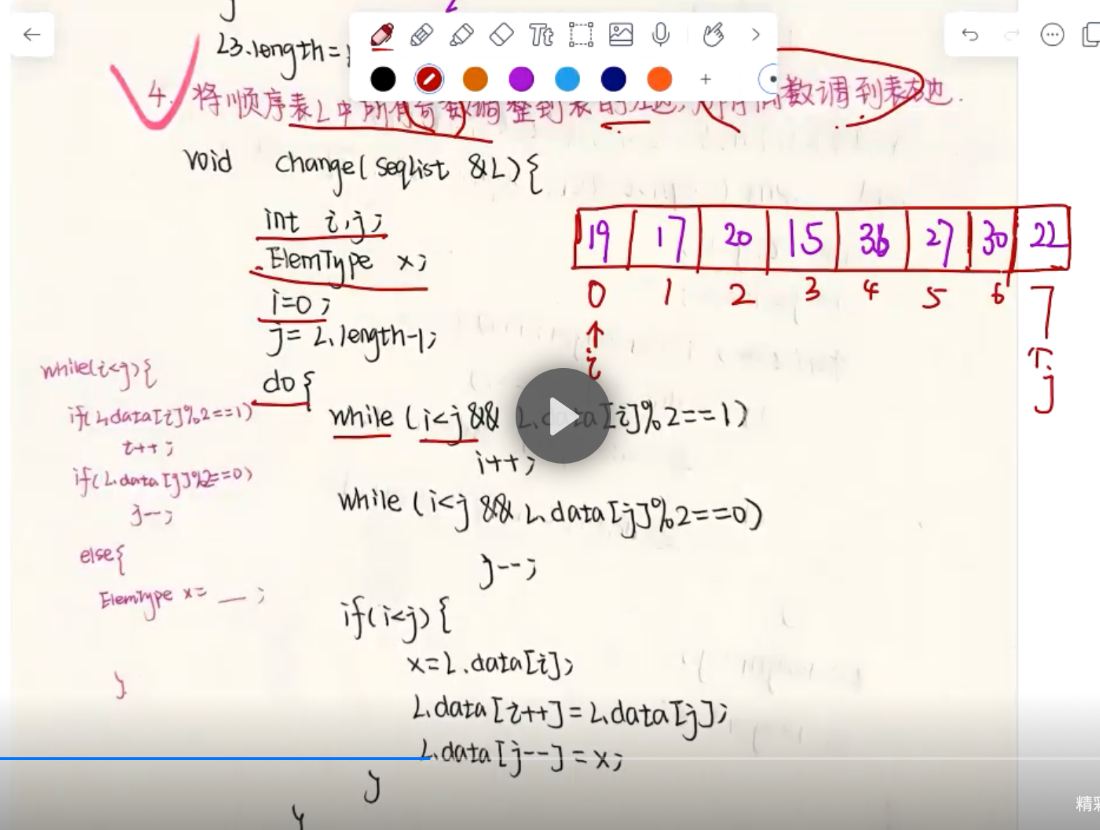 Tt
L3.length=
4. 将顺序表L中所有奇数调整到表的左边,所有偶数调到表右边.
void change(SeqList &L){
int i,j;
ElemType x;
i=0;
j=L.length-1;
do{
while(i<j&& L.data[i]%2==1)
i++;
while(i<j&&L.data[j]%2==0)
j--;
if(i<j){
x=L.data[i];
L.data[i++]=L.data[j];
L.data[j--]=x;
}
while(i<j){
if(L.data[i]%2==1)
i++;
if(L.data[j]%2==0)
j--;
else{
ElemType x= __;
}
19 17 20 15 36 27 30 22
0 1 2 3 4 5 6 7
i
j
精彩